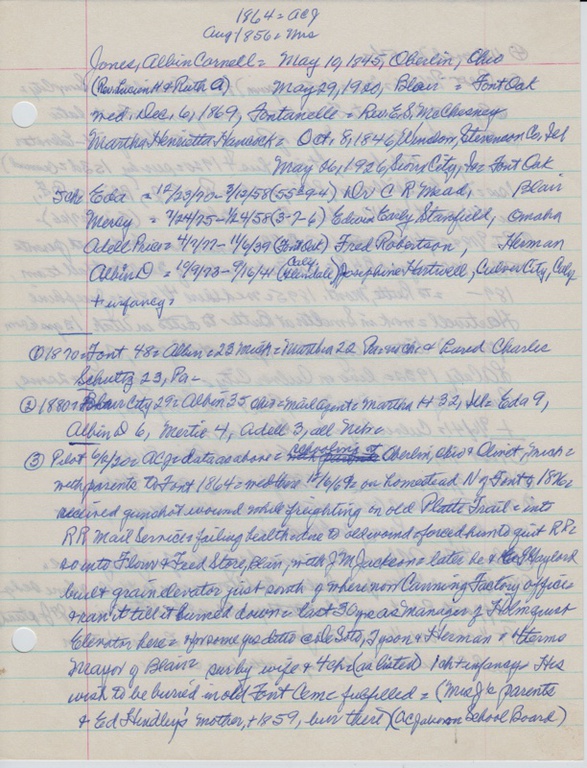 1864 = ACJ
Aug 1856 = Mrs
Jones, Albin Carnell = May 10, 1845, Oberlin, Ohio
(Rev Lucien H & Ruth A) May 29, 1920, Blair = Font Oak
med, Dec, 6, 1869, Fontanelle = Rev E.S. McChesney
Martha Henrietta Hancock = Oct, 8, 1846, Windson, Stevenson Co, Ill
May 26, 1926, Sioux City, Ia = Font Oak
5 ch: Eda = 12/23/70 - 3/12/58 (55=94) Dr C R Mead, Blair
Mercy = 7/24/75 - 1/24/58 (3-7-6) Edwin Early Stanfield, Omaha
Adell Price = 4/7/77 - 11/6/39 (Font Oak) Fred Robertson, Herman
Albin D = 10/9/73 - 9/16/41 (Glendale, Caly) Josephine Hartwell, Culver City, Caly
+ infancy =
① 1870 = Font 48 = Albin = 23 Mich = Martha 22 Pa = & Lared Charles
Schultz 23, Pa =
② 1880 = Blair City 29 = Albin 35 Ohio = mail agent = Martha H 32, Ill = Eda 9,
Albin D 6, Mertie 4, Adell 3, all Nebr =
③ Pilot 6/2/20 = ACJ = data as above = schooling at Oberlin, Ohio & Olivet, Mich =
with parents to Font 1864 = med there 12/6/69 = on homestead N of Font of 1870 =
received gunshot wound while freighting on old Platte Trail = into
RR Mail Service = failing health = due to old wound = forced him to quit RR =
so into Flour & Feed Store, Blain, with J M Jackson = later he & Haylord
built grain elevator just south of where now Canning Factory office
& ran it till it burned down = last 30 yrs as manager of Holmquist
Elevator here = & for some yrs ditto @ De Soto, Tyson & Herman = 4 terms
Mayor of Blair = surby wife & 4 ch (as listed) 1 ch + infancy = His
wish to be buried in old Font Cemc fulfilled = (Mrs J's parents
& Ed Hindley's mother, + 1859, bur there) (ACJ also on School Board)